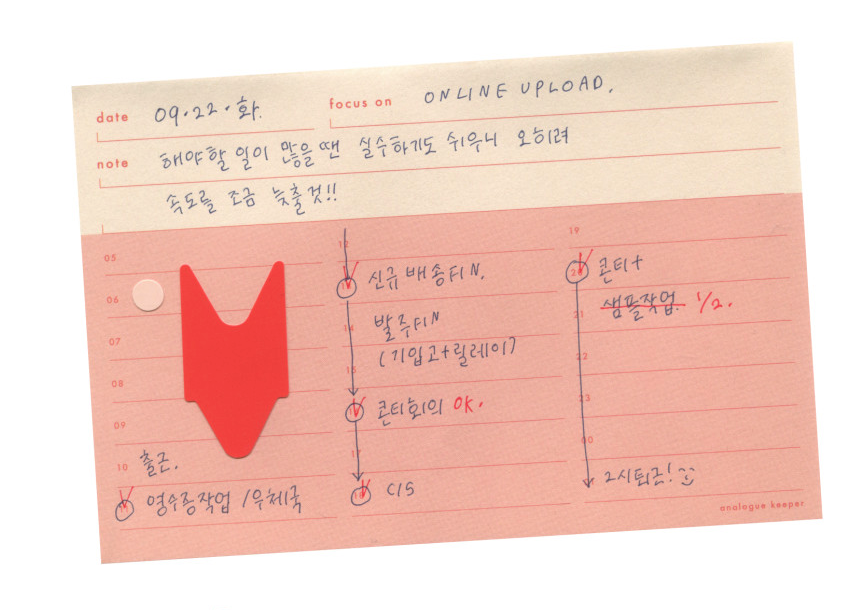 date 09.22.화.
focus on ONLINE UPLOAD.
note 해야할 일이 많을 땐 실수하기도 쉬우니 오히려
속도를 조금 늦출것!!
05
06
07
08
09
10 출근.
영수증작업 /우체국
12
신규배송FIN.
14 발주FIN
(기입고+릴레이)
15
콘티회의 OK.
17
C/S
19
20 콘티+
21 샘플작업. 1/2.
22
23
00
2시퇴근!
analogue keeper